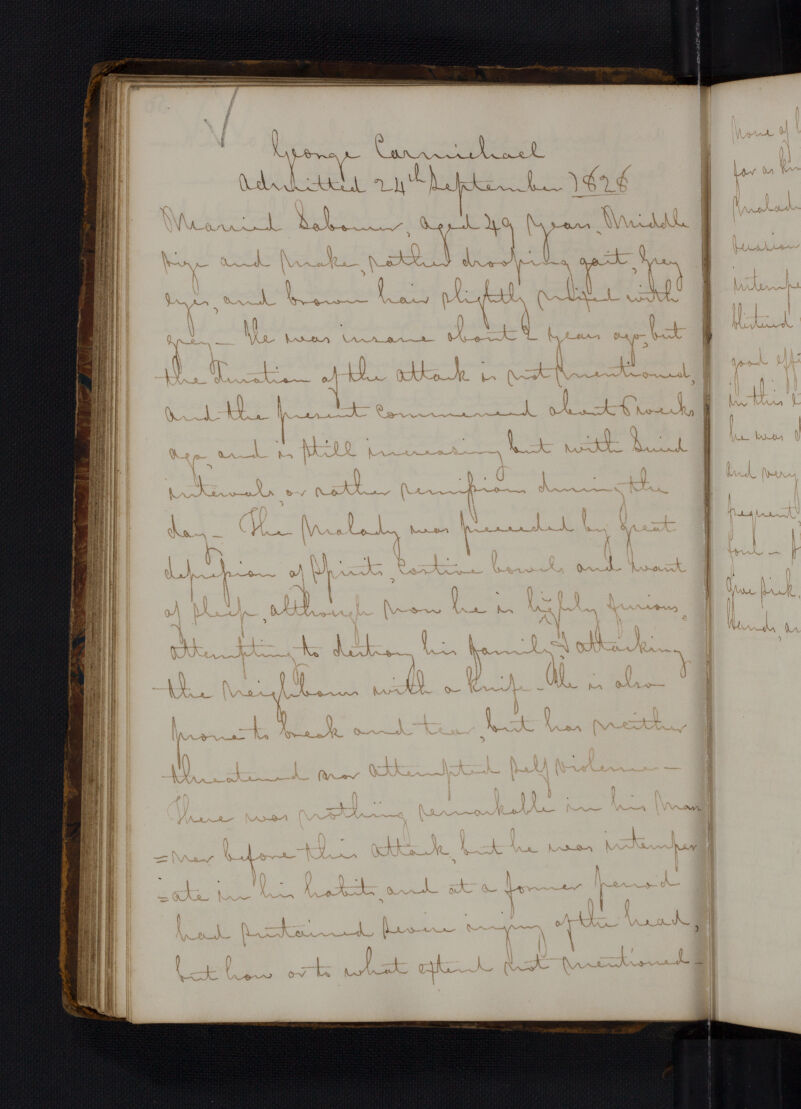 George Carmichael
Admitted 24th September 1828
Married Labourer, aged 49 years, Middle
size and make, rather drooping gait, Grey
eyes, and brown hair slightly mixed with
grey – He was insane about 2 years ago, but
the duration of the attack is not mentioned,
and the present commenced about 8 weeks
ago, and is still increasing but with Lucid
intervals, or rather remissions during the
day – The Malady was preceeded by great
depression of Spirits, Costive bowels and want
of sleep, although now he is highly furious,
attempting to destroy his family, & attacking
the Neighbours with a knife – He is also
prone to break and tear, but has neither
threatened nor attempted self violence –
There was nothing remarkable in his Man
=ner before this attack, but he was intemper
=ate in his habits, and at a former period
had sustained severe injury of the head,
but how or to what extent not mentioned –
None of
far as
Malad
intempe
blistered
good eff
in this
he was
and very
frequent
foul –
Give sick
Hands, an